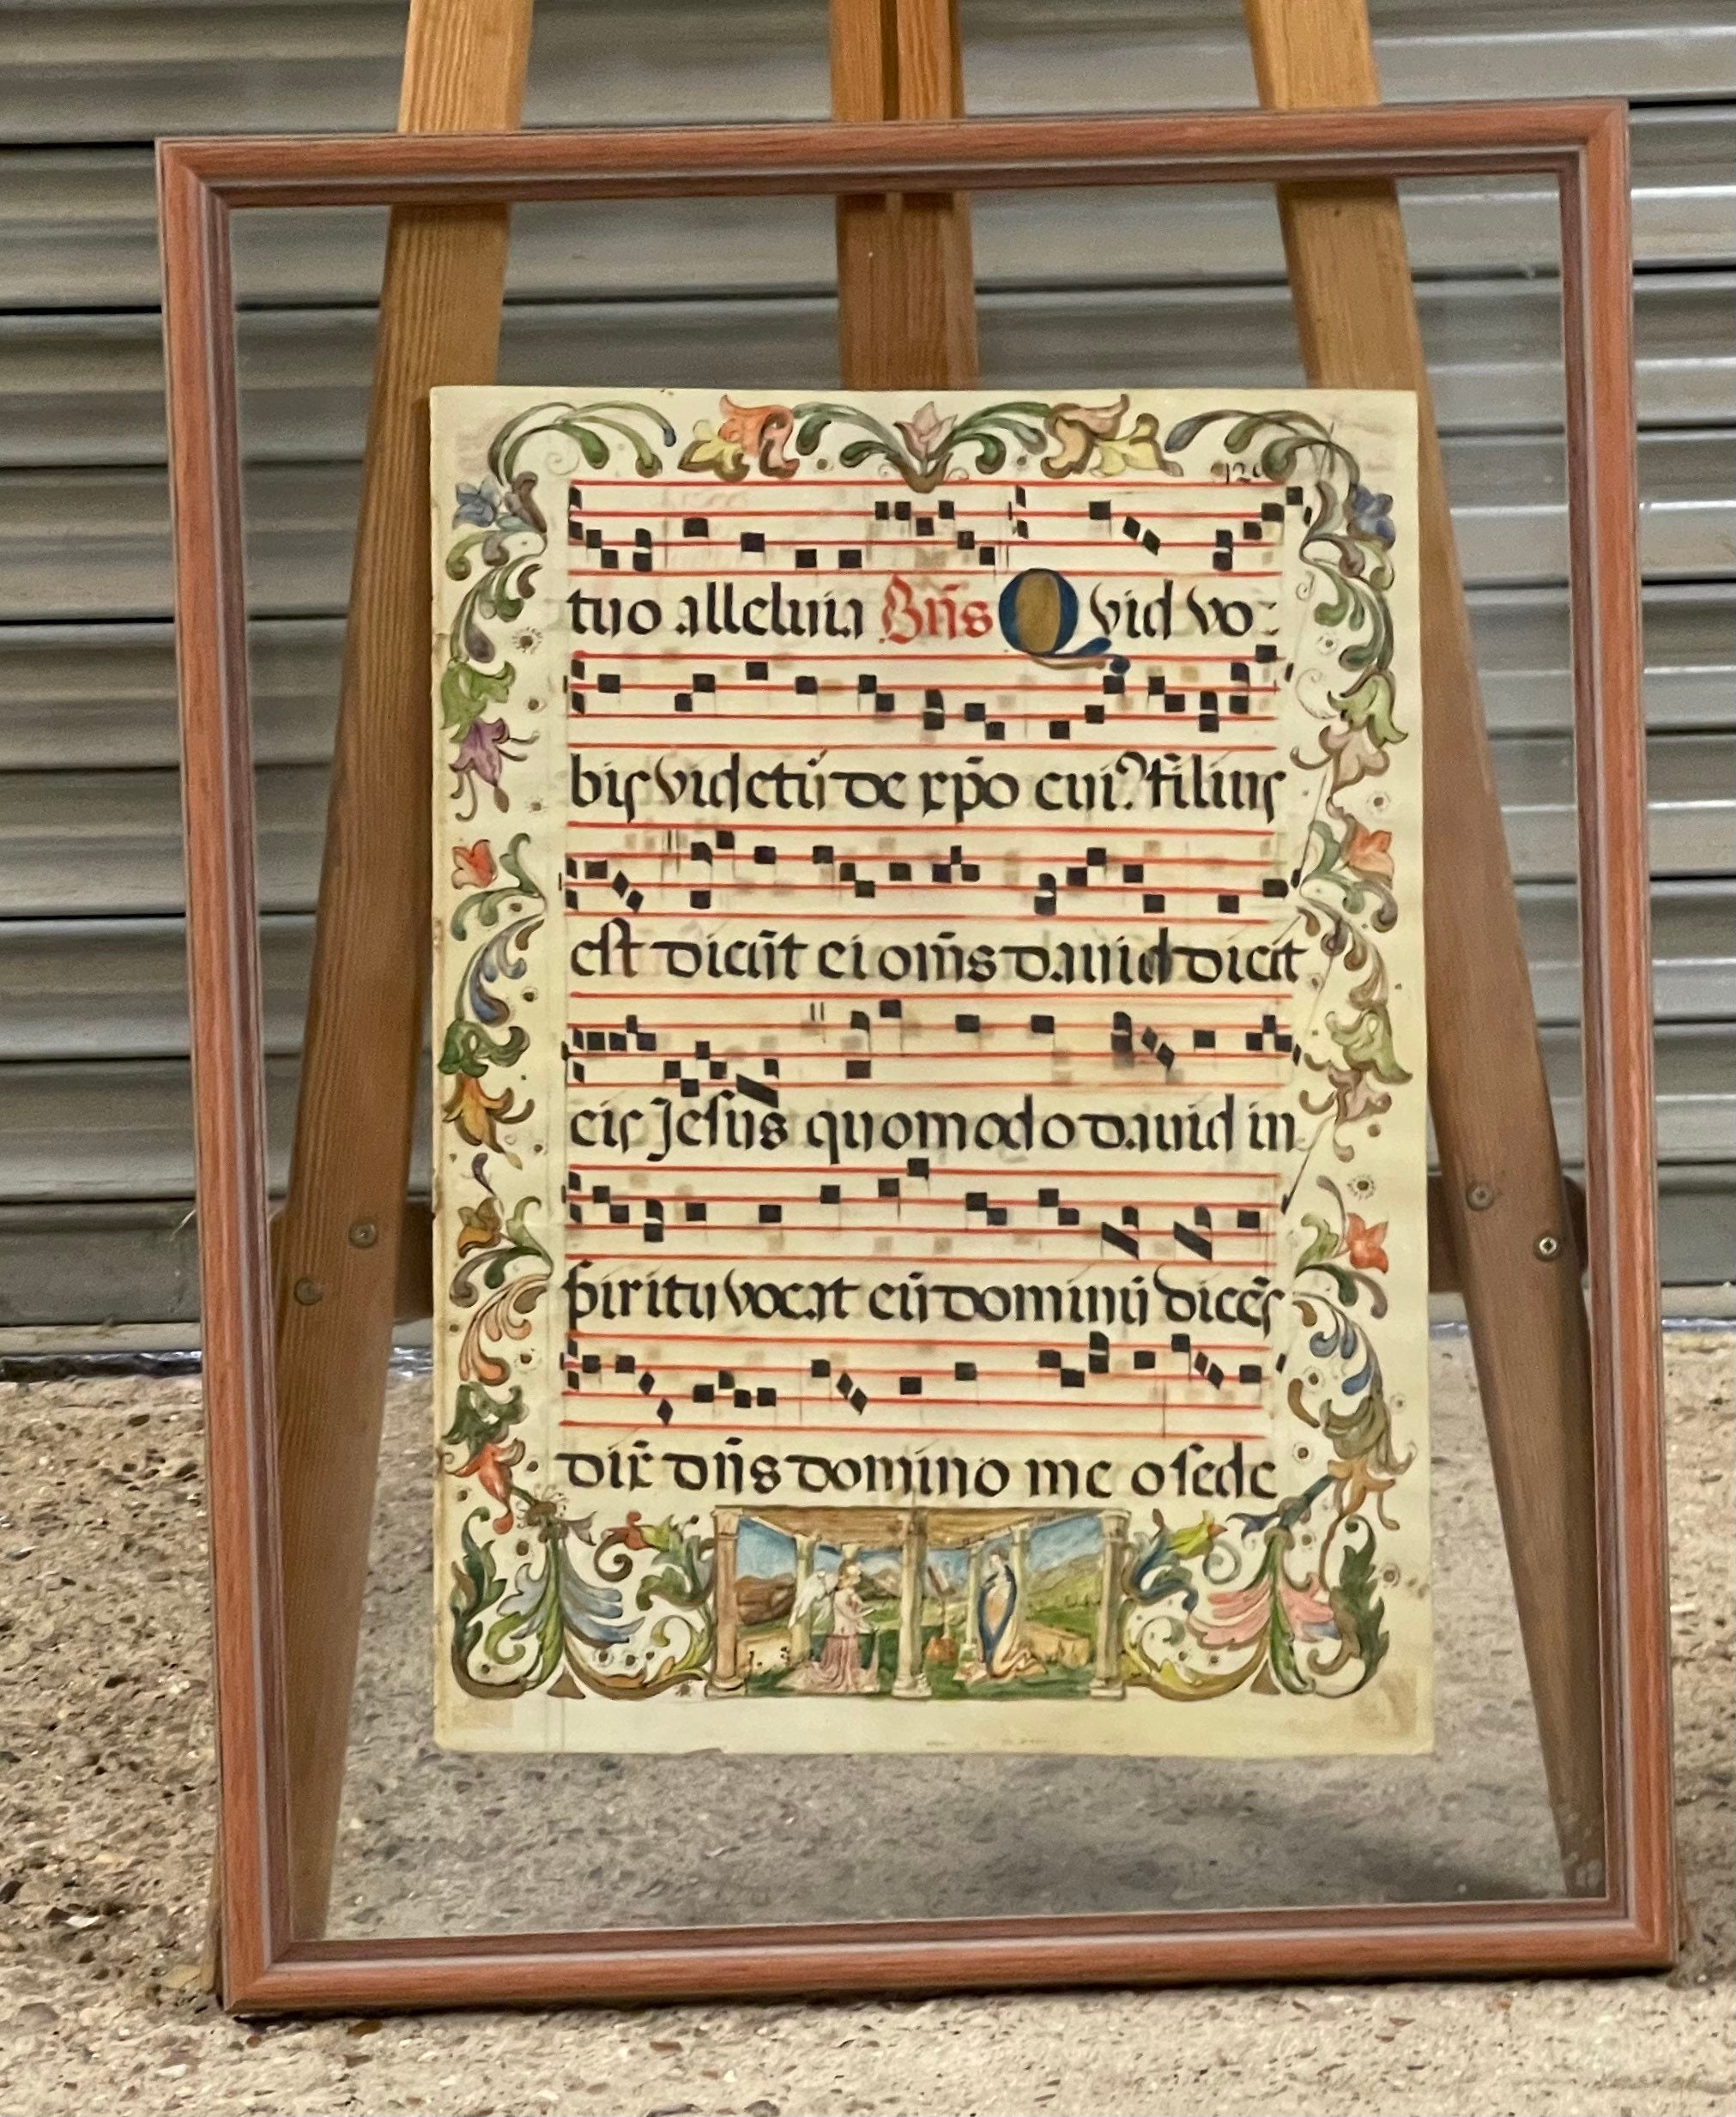 tuo alleluia Bñs Quid vo
bis videtũ de xp̃o cui⁹ filius
est dicũt ei om̃s dauid dicit
eis Jesus quomodo dauid in
spiritu vocat eũ dominũ dicẽs
dix̃ dñs domino meo sede